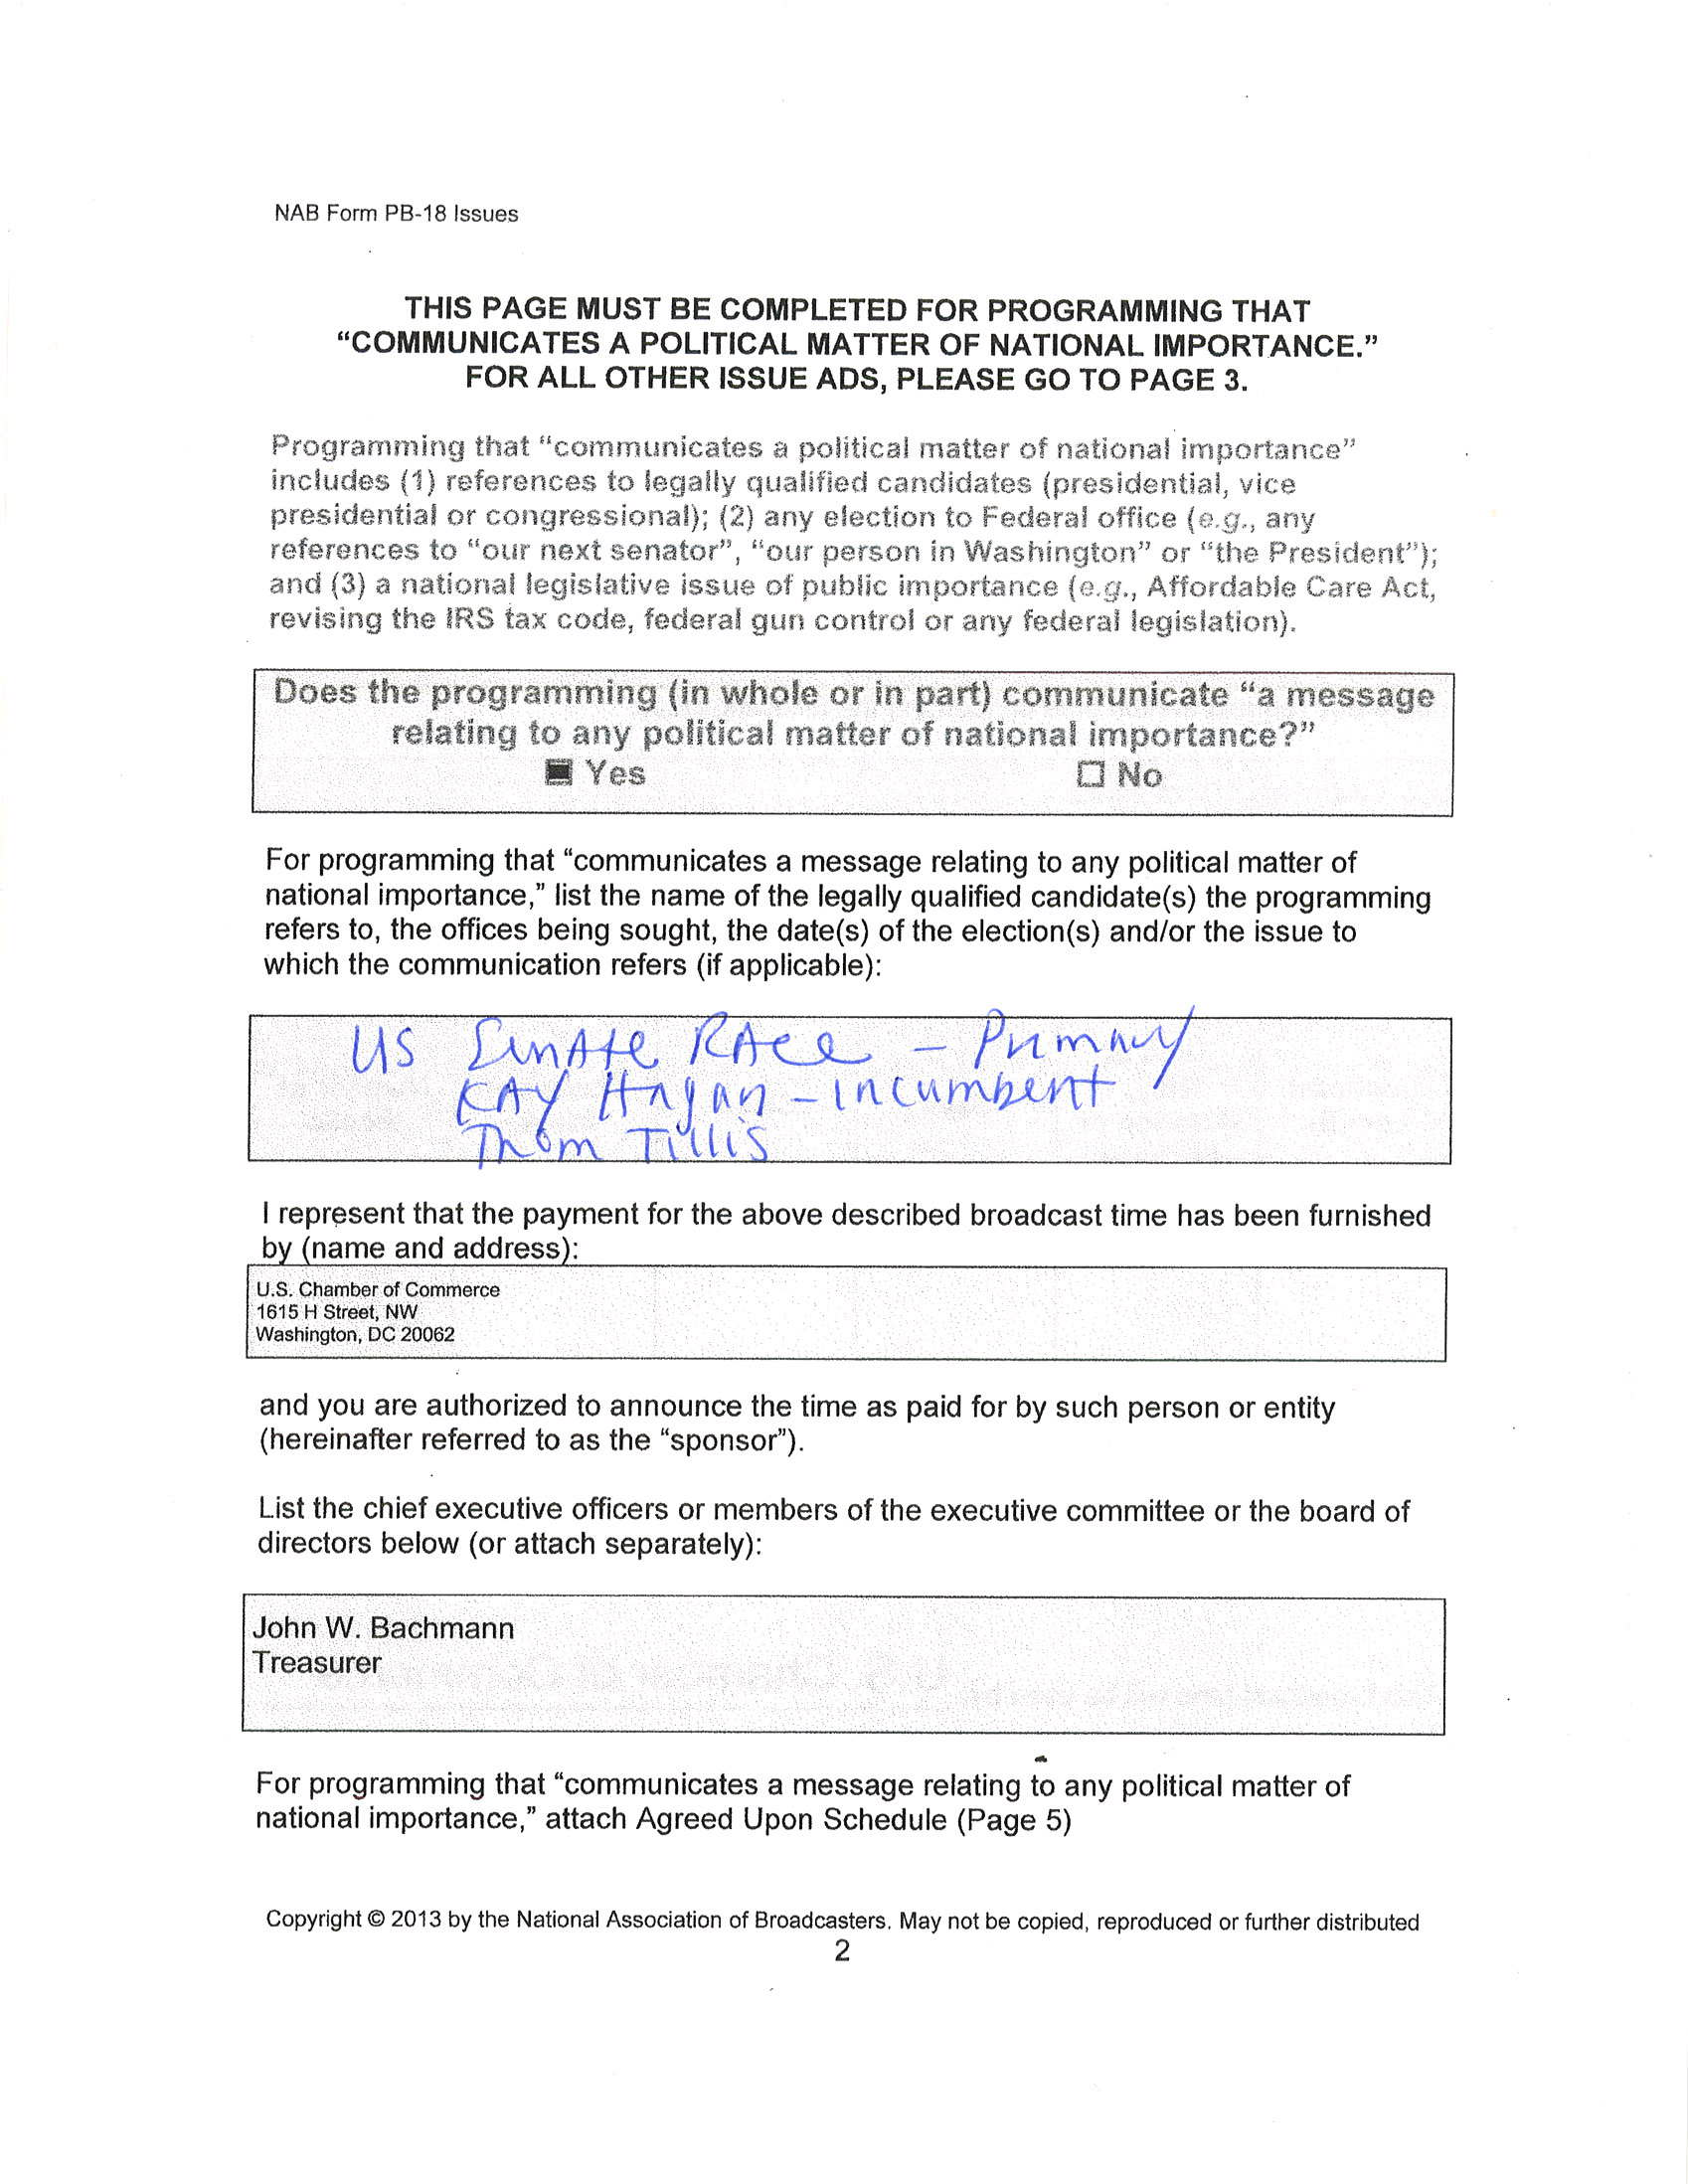 NAB Form PB-18 Issues
THIS PAGE MUST BE COMPLETED FOR PROGRAMMING THAT
“COMMUNICATES A POLITICAL MATTER OF NATIONAL IMPORTANCE.”
FOR ALL OTHER ISSUE ADS, PLEASE GO TO PAGE 3.
Programming that “communicates a political matter of national importance”
includes (1) references to legally qualified candidates (presidential, vice
presidential or congressional); (2) any election to Federal office (e.g., any
references to “our next senator”, “our person in Washington” or “the President”);
and (3) a national legislative issue of public importance (e.g., Affordable Care Act,
revising the IRS tax code, federal gun control or any federal legislation).
Does the programming (in whole or in part) communicate “a message
relating to any political matter of national importance?”
■ Yes ☐ No
For programming that “communicates a message relating to any political matter of
national importance,” list the name of the legally qualified candidate(s) the programming
refers to, the offices being sought, the date(s) of the election(s) and/or the issue to
which the communication refers (if applicable):
US Senate Race - Primary
Kay Hagan - incumbent
Thom Tillis
I represent that the payment for the above described broadcast time has been furnished
by (name and address):
U.S. Chamber of Commerce
1615 H Street, NW
Washington, DC 20062
and you are authorized to announce the time as paid for by such person or entity
(hereinafter referred to as the “sponsor”).
List the chief executive officers or members of the executive committee or the board of
directors below (or attach separately):
John W. Bachmann
Treasurer
For programming that “communicates a message relating to any political matter of
national importance,” attach Agreed Upon Schedule (Page 5)
Copyright © 2013 by the National Association of Broadcasters. May not be copied, reproduced or further distributed
2